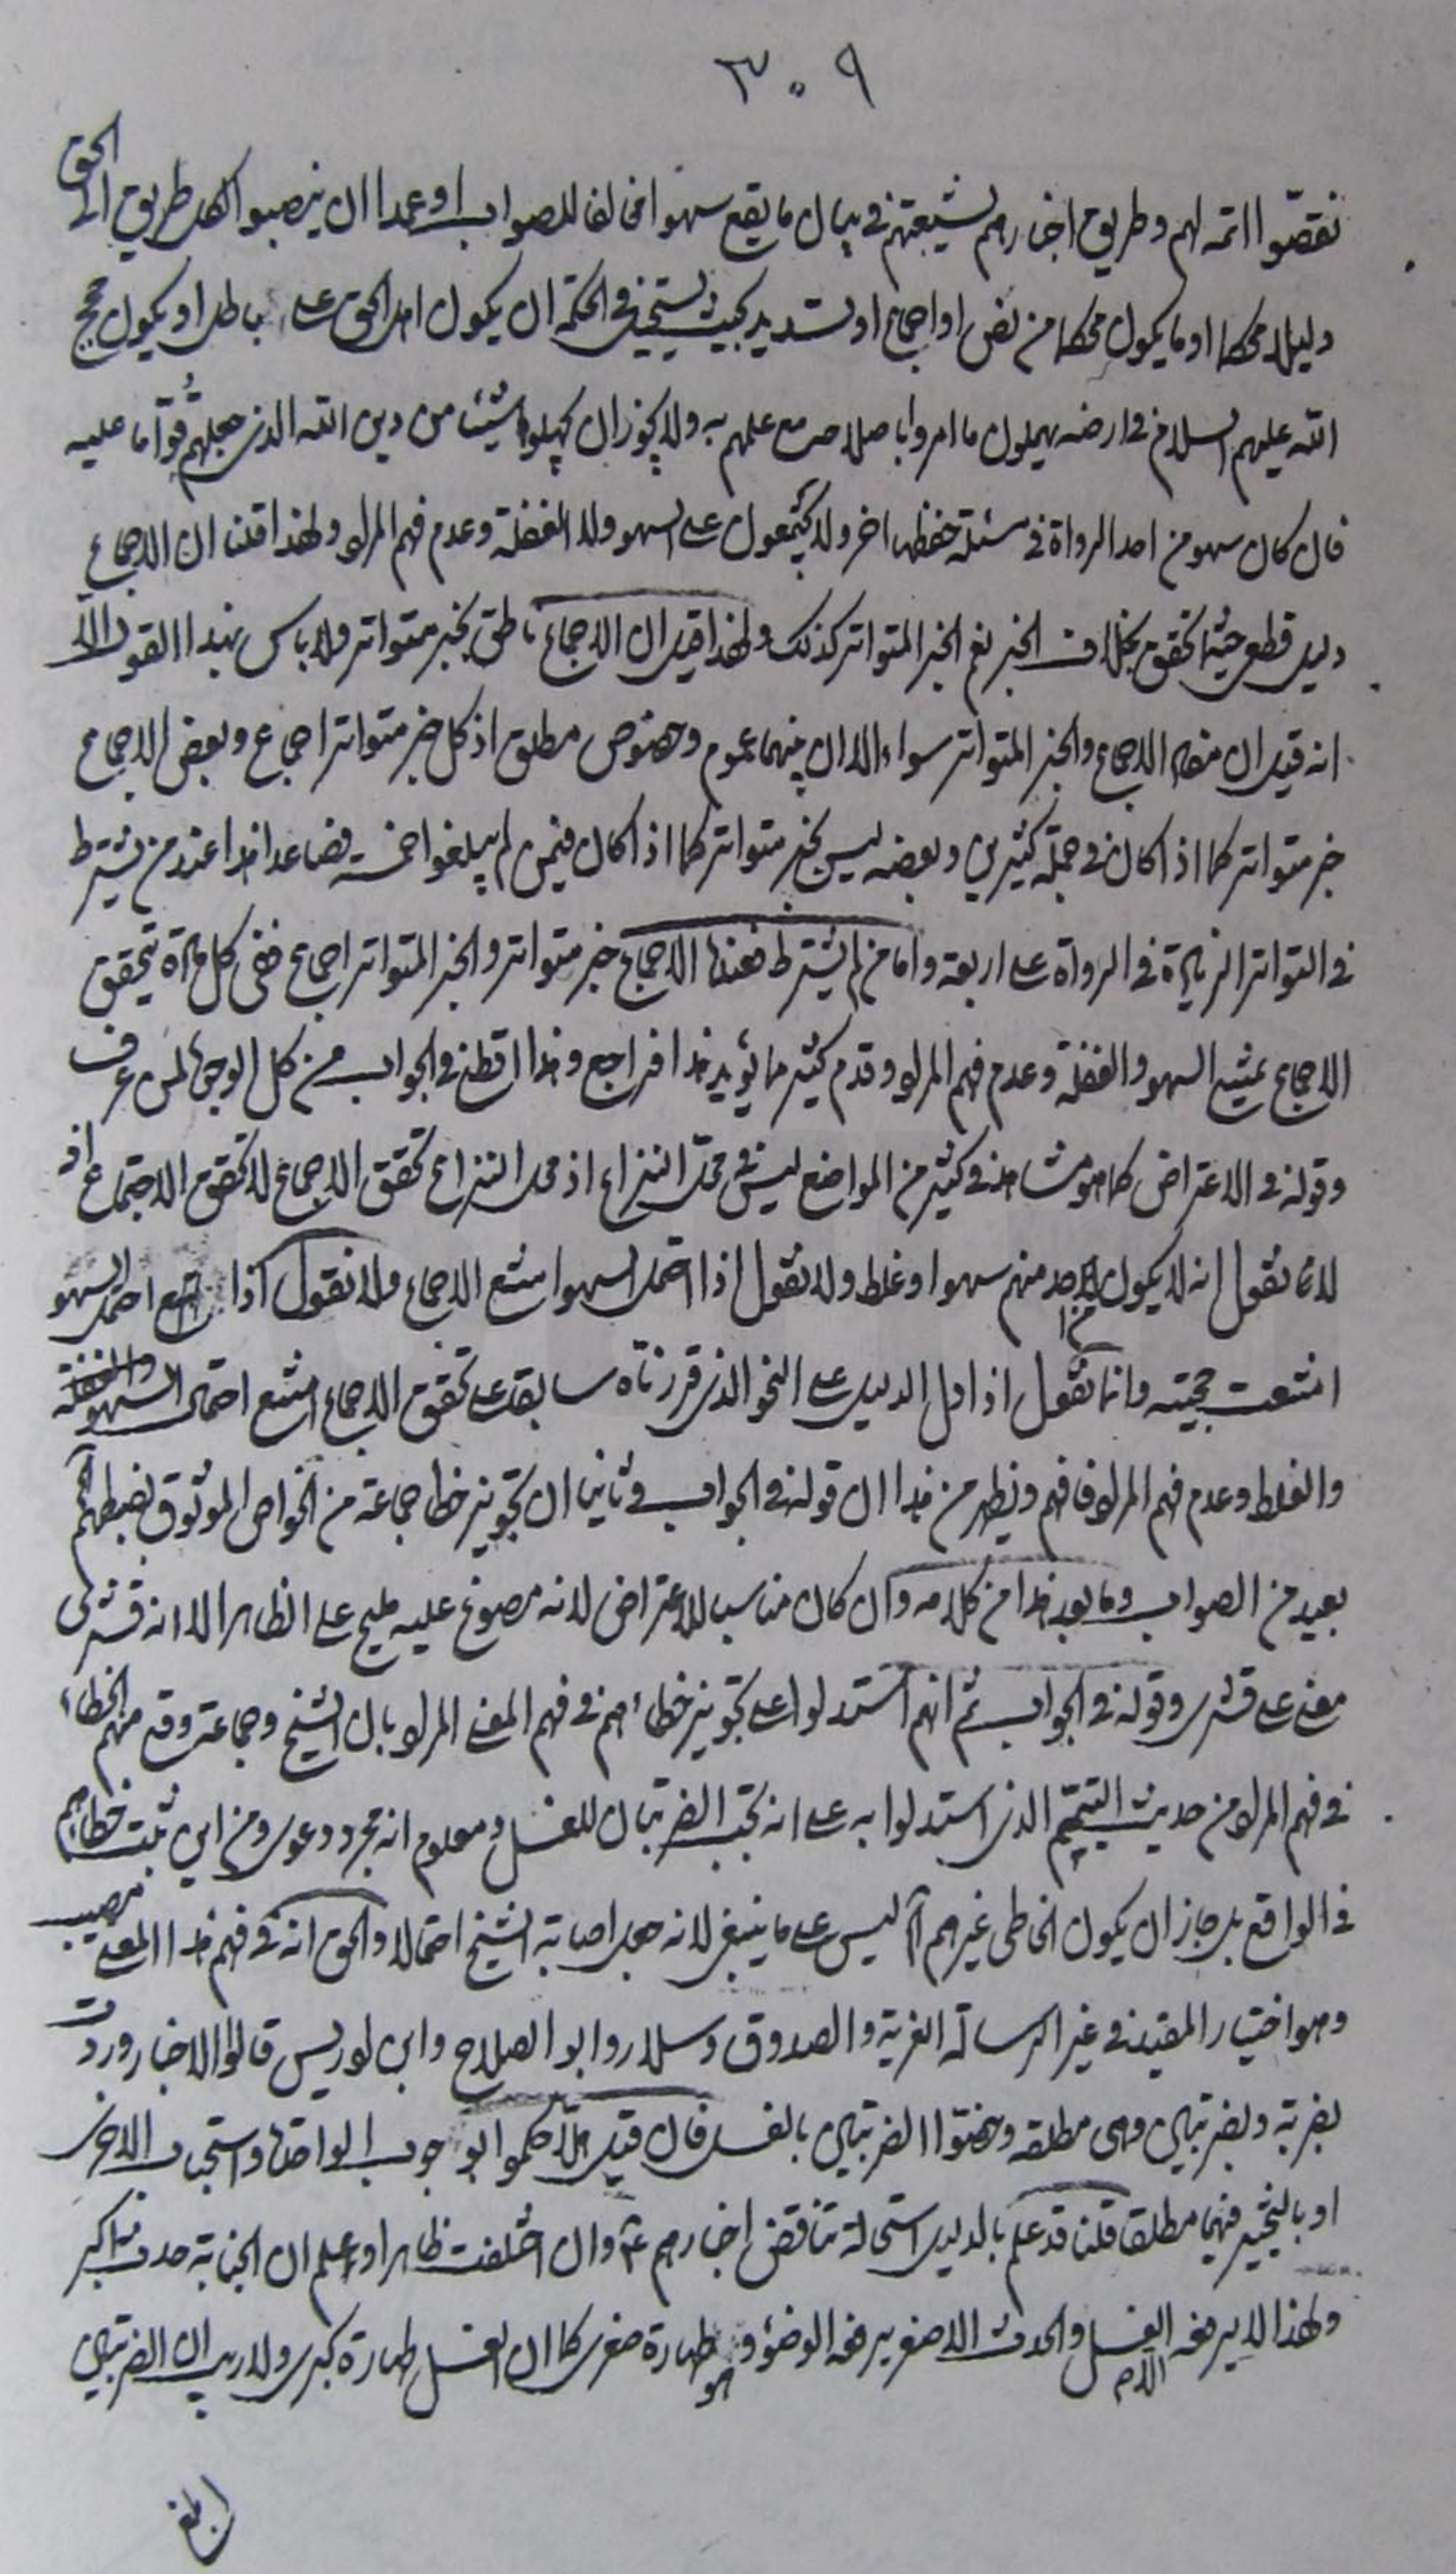 ٣٠٩
نقصوا اتمه لهم وطريق اخبارهم لشيعتهم في بيان ما يقع سهوا مخالفا للصواب او عمدا ان ينصبوا لاهل طريق الحق
دليلا محكما او ما يكون محكما من نص او اجماع او تسديد بحيث يستحيل في الحكمة ان يكون اهل الحق على باطل او يكون حجج
الله عليهم السلام في ارضه يهملون ما امروا باصلاحه مع علمهم به ولا يجوز ان يجهلوا شيئا من دين الله الذي جعلهم قواما عليه
فان كان سهو من احد الرواة في مسئلة حفظها اخر ولا يجتمعون على السهو ولا الغفلة وعدم فهم المراد ولهذا قلنا ان الاجماع
دليل قطعي حيثما تحقق بخلاف الخبر نعم الخبر المتواتر كذلك ولهذا قيل ان الاجماع ناطق بخبر متواتر ولا باس بهذا القول الا
انه قيل ان الاجماع والخبر المتواتر سواء الا ان بينهما عموم وخصوص مطلق اذ كل خبر متواتر اجماع وبعض الاجماع
خبر متواتر كما اذا كان في جملة كثيرين وبعضه ليس بخبر متواتر كما اذا كان فيمن لم يبلغوا خمسة فصاعدا هذا عند من يشترط
في التواتر الزيادة في الرواة على اربعة واما من لم يشترط فعنده الاجماع خبر متواتر والخبر المتواتر اجماع ففي كل مادة تحقق
الاجماع يمتنع السهو والغفلة وعدم فهم المراد وقدم كثير ما يؤيد هذا فراجع وهذا قطني في الجواب من كل الوجوه لمن عرف
وقوله في الاعتراض كما هو مشاهد في كثير من المواضع ليس في محل النزاع اذ محل النزاع تحقق الاجماع لا تحقق الاجتماع اذ
لانا نقول انه لا يكون لاحد منهم سهوا وغلط ولا نقول اذا احتمل السهو امتنع الاجماع ولا نقول اذا احتمل السهو
امتنعت حجيته وانما نقول اذا دل الدليل على النحو الذي قررناه سابقا على تحقق الاجماع امتنع احتمال السهو والغفلة
والغلط وعدم فهم المراد فافهم ويظهر من هذا ان قوله في الجواب وثانيا ان تجويز خطا جماعة من الخواص الموثوق بضبطهم
بعيد من الصواب وما بعد هذا من كلامه وان كان مناسبا للاعتراض لانه مصوغ عليه مليح على الظاهر الا انه قشري
مبني على قشري وقوله في الجواب ثم انهم استدلوا على تجويز خطاءهم في فهم المعنى المراد بان الشيخ وجماعة وقع منهم الخطاء
في فهم المراد من حديث التيمم الذي استدلوا به على انه تجب الضربتان للغسل ومعلوم انه مجرد دعوى ومن اين ثبت خطاهم
في الواقع بل جاز ان يكون الخاطي غيرهم آه ليس على ما ينبغي لانه جعل اصابة الشيخ احتمالا والحق انه في فهم هذا المعنى مصيب
وهو اختيار المفيد في غير الرسالة الغرية والصدوق وسلار وابو الصلاح وابن ادريس قالوا الاخبار وردت
بضربة وبضربتين وهي مطلقة وخصوا الضربتين بالغسل فان قيل هلا حكموا بوجوب الواحدة واستحباب الاخرى
او بالتخيير فيهما مطلقا قلنا قد علم بالدليل استحالة تناقض اخبارهم ع وان اختلفت ظاهرا واعلم ان الجنابة حدث اكبر
ولهذا لا يرفعه الا الغسل والحدث الاصغر يرفعه الوضؤ وهو طهارة صغرى كما ان الغسل طهارة كبرى ولا ريب ان الضربتين
ابلغ